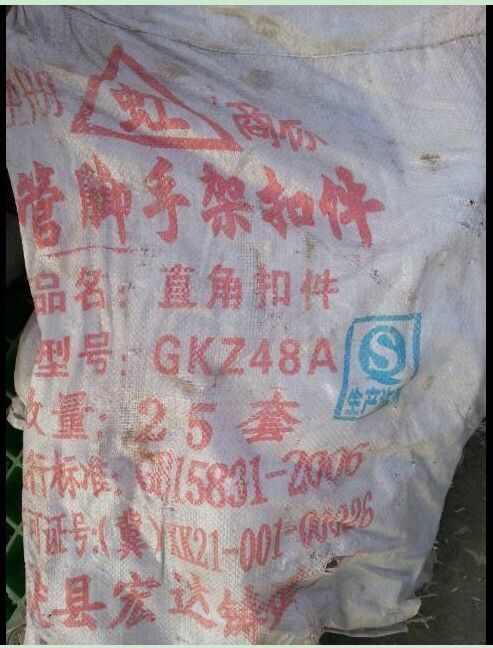 虹 商标
管脚手架扣件
品名：直角扣件
型号：GKZ48A
生产许可
数量：25套
行标准：GB15831-2006
可证号：(冀)XK21-001-00326
县宏达铸